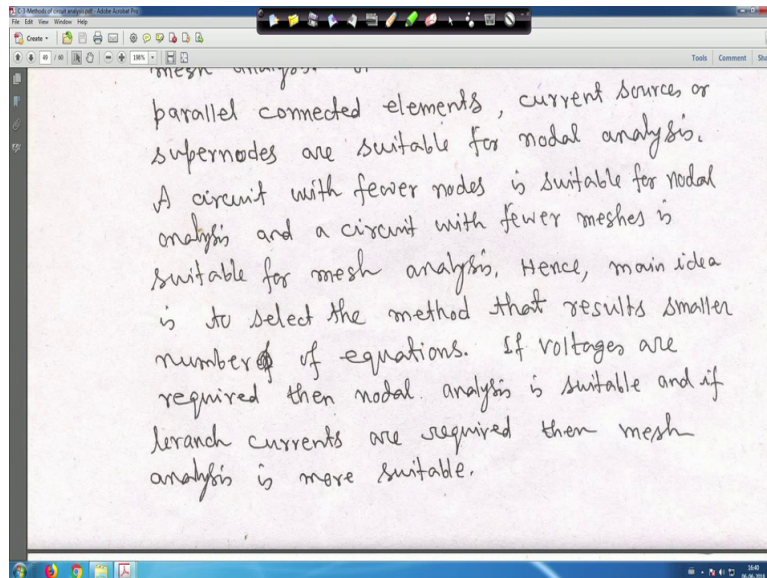 C-3-Methods of circuit analysis.pdf - Adobe Acrobat Pro
File Edit View Window Help
Create
49 / 60 198% Tools Comment
mesh analysis.
parallel connected elements, current sources or
supernodes are suitable for nodal analysis.
A circuit with fewer nodes is suitable for nodal
analysis and a circuit with fewer meshes is
suitable for mesh analysis. Hence, main idea
is to select the method that results smaller
number of equations. If voltages are
required then nodal analysis is suitable and if
branch currents are required then mesh
analysis is more suitable.
16:40